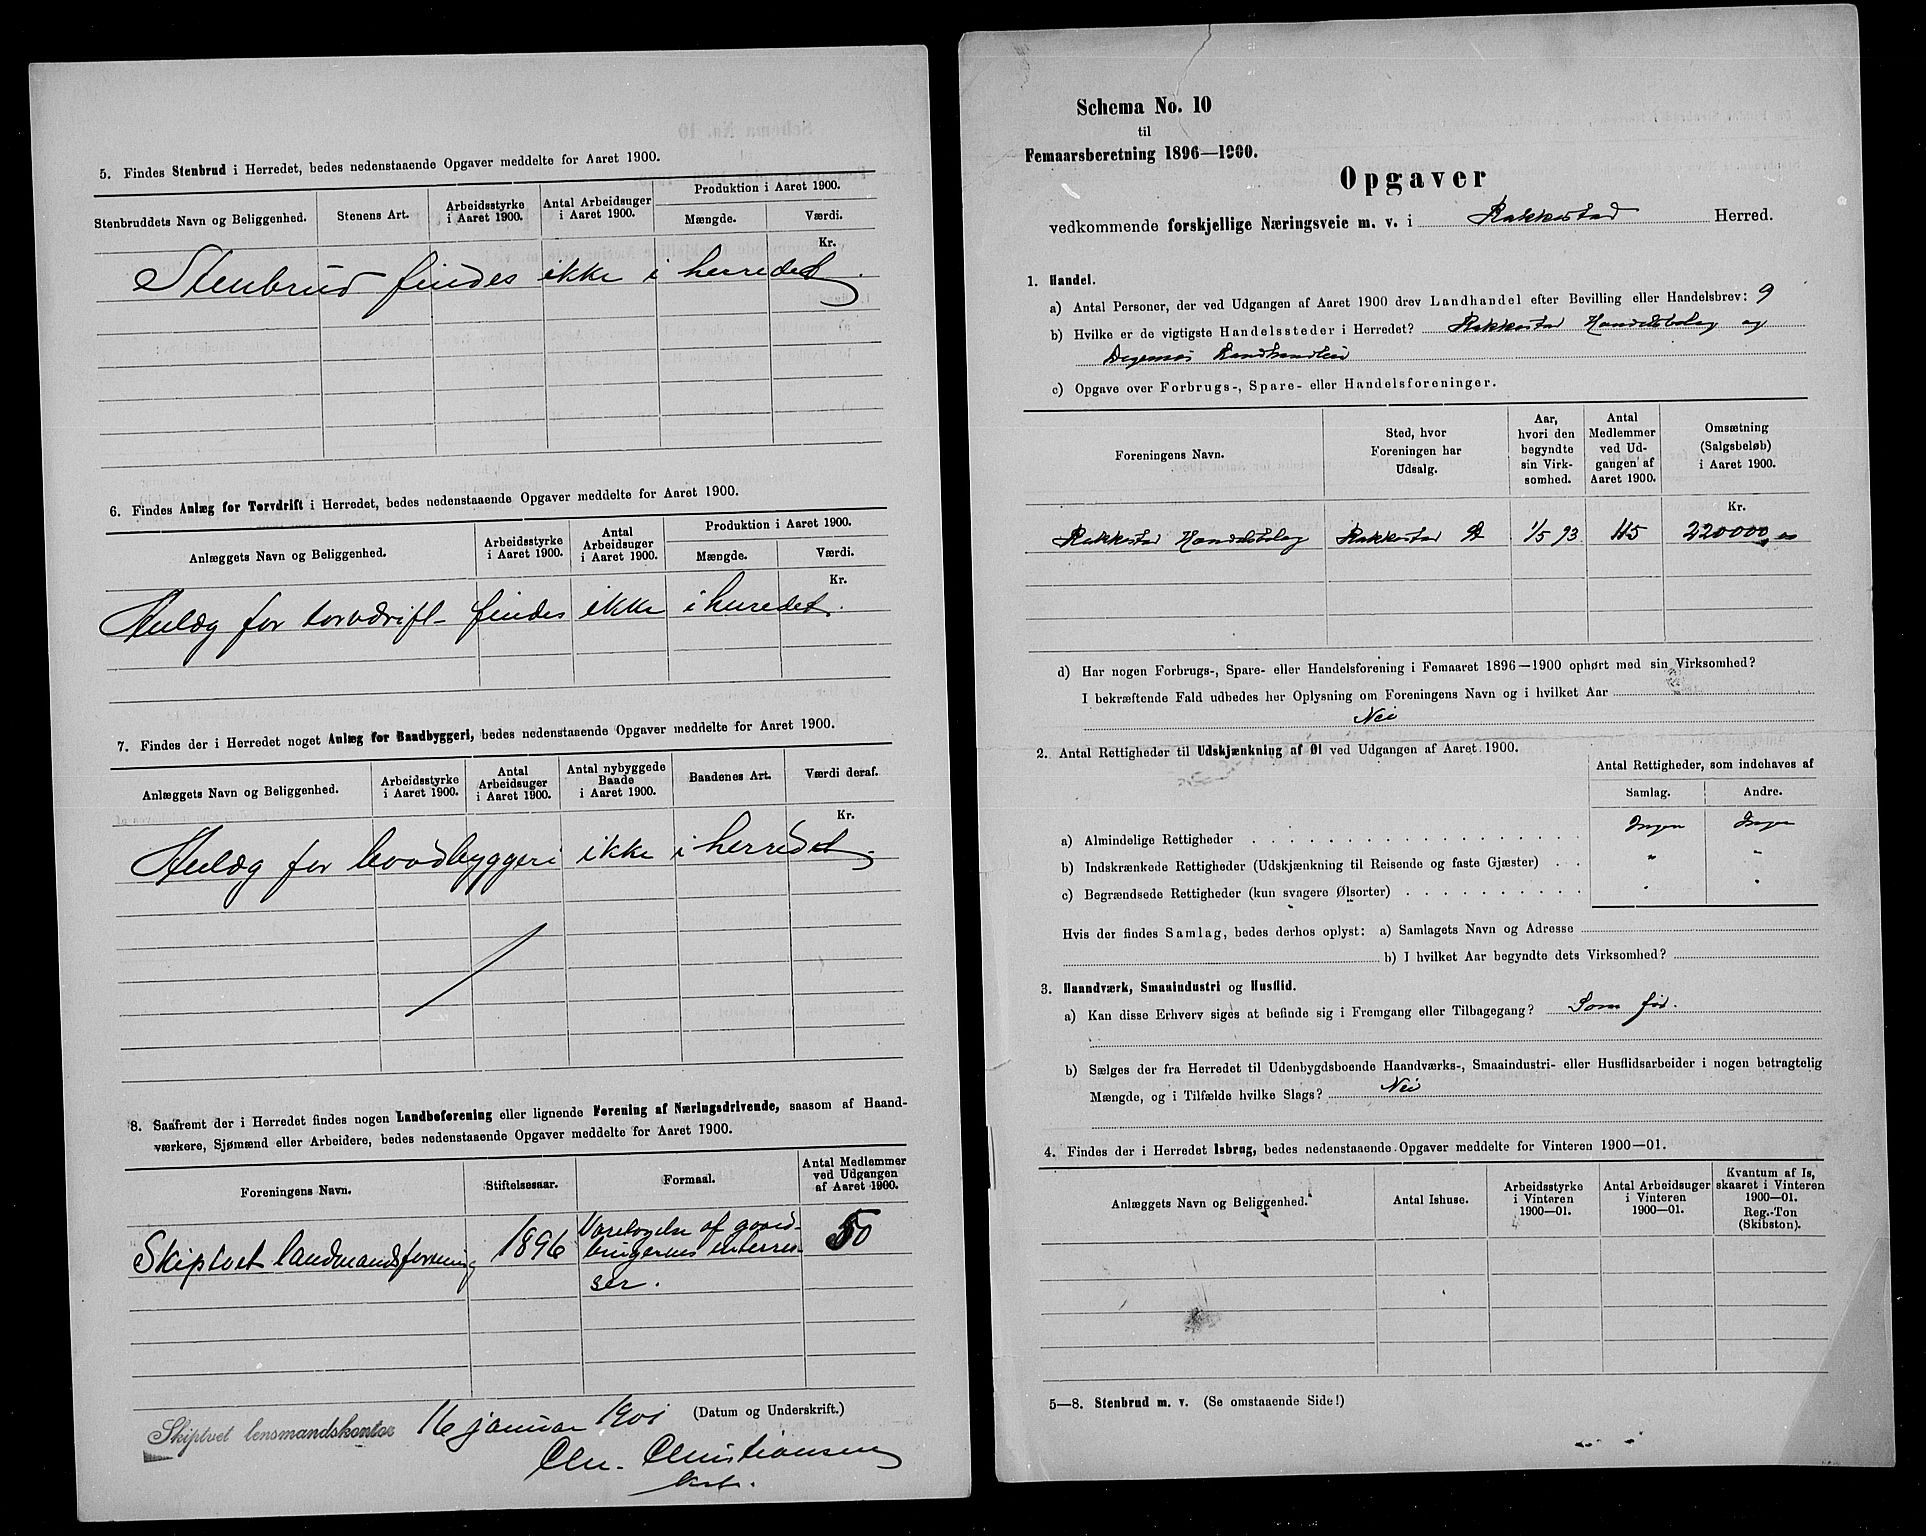 5. Findes Stenbrud i Herredet, bedes nedenstaaende Opgaver meddelte for Aaret 1900.
Stenbruddets Navn og Beliggenhed. Stenens Art. Arbeidsstyrke i Aaret 1900. Antal Arbeidsuger i Aaret 1900. Produktion i Aaret 1900.
Mængde. Værdi.
Kr.
Stenbrud findes ikke i herredet.
6. Findes Anlæg for Torvdrift i Herredet, bedes nedenstaaende Opgaver meddelte for Aaret 1900.
Anlæggets Navn og Beliggenhed. Arbeidsstyrke i Aaret 1900. Antal Arbeidsuger i Aaret 1900. Produktion i Aaret 1900.
Mængde. Værdi.
Kr.
Anlæg for torvdrift findes ikke i herredet.
7. Findes der i Herredet noget Anlæg for Baadbyggeri, bedes nedenstaaende Opgaver meddelte for Aaret 1900.
Anlæggets Navn og Beliggenhed. Arbeidsstyrke i Aaret 1900. Antal Arbeidsuger i Aaret 1900. Antal nybyggede Baade i Aaret 1900. Baadenes Art. Værdi deraf.
Kr.
Anlæg for baadbyggeri ikke i herredet.
8. Saafremt der i Herredet findes nogen Landboforening eller lignende Forening af Næringsdrivende, saasom af Haand-
værkere, Sjømænd eller Arbeidere, bedes nedenstaaende Opgaver meddelte for Aaret 1900.
Foreningens Navn. Stiftelsesaar. Formaal. Antal Medlemmer ved Udgangen af Aaret 1900.
Skiptvet landmandsforening 1896 Varetagelse af gaard-
brugernes interres-
ser. 50
(Datum og Underskrift.)
Skiptvet lensmandskontor 16 januar 1901
Chr. Christiansen
Schema No. 10
til
Femaarsberetning 1896—1900.
Opgaver
vedkommende forskjellige Næringsveie m. v. i Rakkestad Herred.
1. Handel.
a) Antal Personer, der ved Udgangen af Aaret 1900 drev Landhandel efter Bevilling eller Handelsbrev: 9
b) Hvilke er de vigtigste Handelssteder i Herredet? Rakkestad Handelslag og
Degernes Landhandleri
c) Opgave over Forbrugs-, Spare- eller Handelsforeninger.
Foreningens Navn. Sted, hvor Foreningen har Udsalg. Aar, hvori den begyndte sin Virksomhed. Antal Medlemmer ved Udgangen af Aaret 1900. Omsætning (Salgsbeløb) i Aaret 1900.
Kr.
Rakkestad Handelslag Rakkestad 1/5 93 115 220000,00
d) Har nogen Forbrugs-, Spare- eller Handelsforening i Femaaret 1896—1900 ophørt med sin Virksomhed?
I bekræftende Fald udbedes her Oplysning om Foreningens Navn og i hvilket Aar
Nei
2. Antal Rettigheder til Udskjænkning af Øl ved Udgangen af Aaret 1900.
Antal Rettigheder, som indehaves af
Samlag. Andre.
a) Almindelige Rettigheder Ingen Ingen
b) Indskrænkede Rettigheder (Udskjænkning til Reisende og faste Gjæster) " "
c) Begrændsede Rettigheder (kun svagere Ølsorter) " "
Hvis der findes Samlag, bedes derhos oplyst: a) Samlagets Navn og Adresse
b) I hvilket Aar begyndte dets Virksomhed?
3. Haandværk, Smaaindustri og Husflid.
a) Kan disse Erhverv siges at befinde sig i Fremgang eller Tilbagegang? Som før.
b) Sælges der fra Herredet til Udenbygdsboende Haandværks-, Smaaindustri- eller Husflidsarbeider i nogen betragtelig
Mængde, og i Tilfælde hvilke Slags? Nei
4. Findes der i Herredet Isbrug, bedes nedenstaaende Opgaver meddelte for Vinteren 1900—01.
Anlæggets Navn og Beliggenhed. Antal Ishuse. Arbeidsstyrke i Vinteren 1900—01. Antal Arbeidsuger i Vinteren 1900—01. Kvantum af Is, skaaret i Vinteren 1900—01. Reg.-Ton (Skibston).
5—8. Stenbrud m. v. (Se omstaaende Side!)